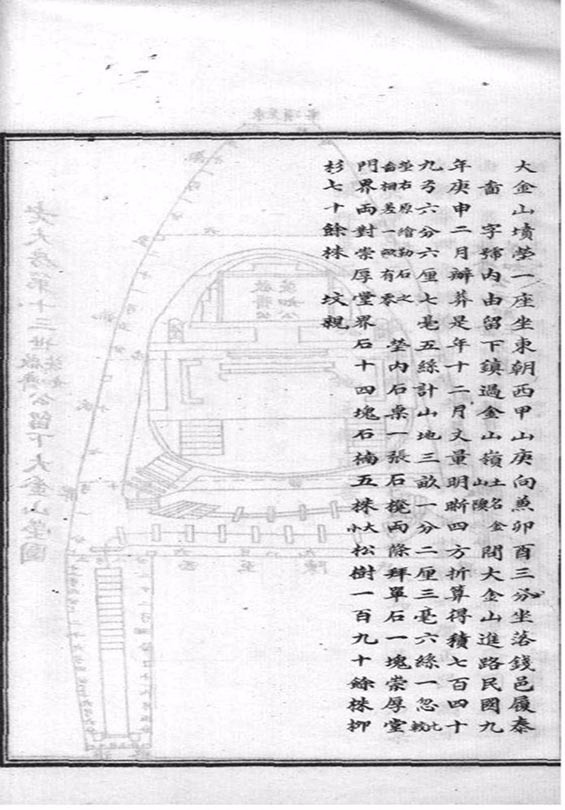 大金山墳塋一座坐東朝西甲山庚向兼卯酉三分坐落錢邑履泰
字號內由留下鎮過金山嶺土名金山大金山進路民國九
年庚申二月辦葬是年十二月丈量明晰四方折算得積七百四十
九弓六分六厘七毫五絲計山地三畝一分二厘三毫六絲一忽比較
塋右原繪勒石之畝相差一畝有零塋內石桌一張石櫈兩條拜單石一塊崇厚堂
門界兩對崇厚堂界石十四塊石楠五株大小松樹一百九十餘株柳
杉七十餘株 坟親